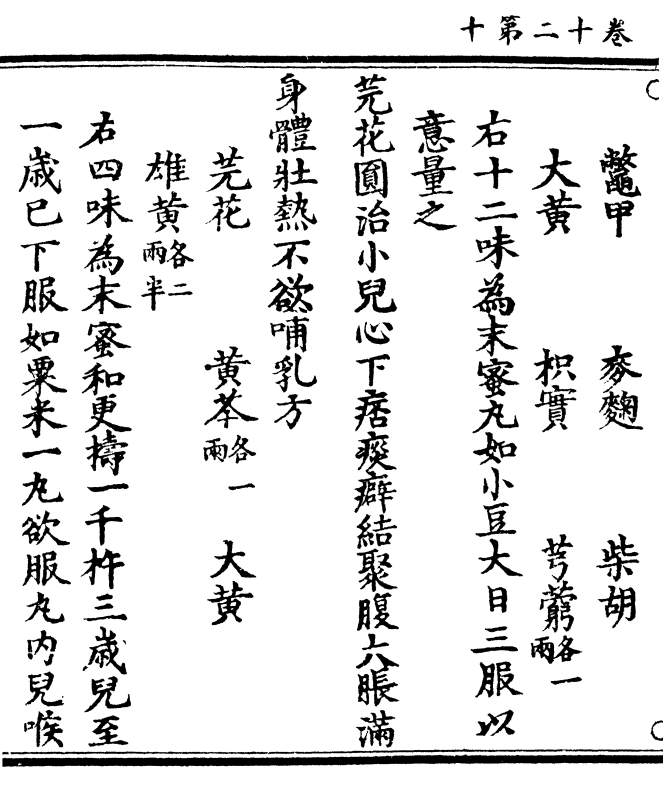 卷十二第十
鼈甲 麥麴 柴胡
大黄 枳實 芎藭各一兩
右十二味為末蜜丸如小豆大日三服以
意量之
芫花圓治小兒心下痞痰癖結聚腹大脹滿
身體壯熱不欲哺乳方
芫花 黄芩各一兩 大黄
雄黄各二兩半
右四味為末蜜和更擣一千杵三歲兒至
一歲巳下服如粟米一丸欲服丸内兒喉